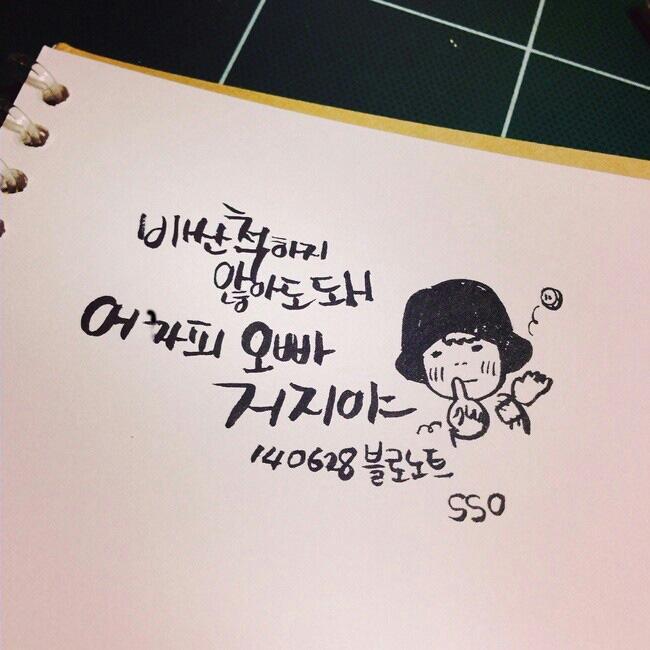 비싼척하지
않아도 돼
어차피 오빠
거지야
140628 블로노트
SSO